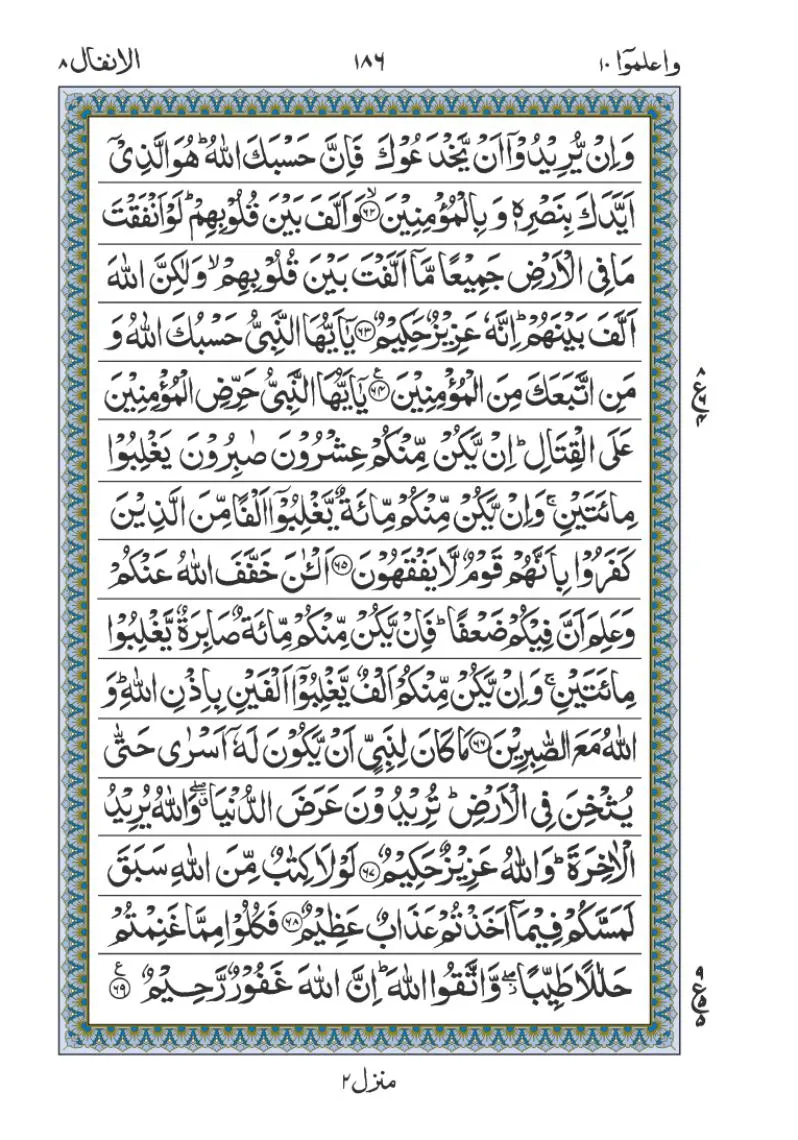 واعلموٓا ١٠
١٨٦
الانفال ٨
وَاِنْ يُّرِيْدُوْٓا اَنْ يَّخْدَعُوْكَ فَاِنَّ حَسْبَكَ اللّٰهُ ؕ هُوَ الَّذِیْۤ
اَيَّدَكَ بِنَصْرِهٖ وَ بِالْمُؤْمِنِيْنَ ۙ﴿۶۲﴾ وَاَلَّفَ بَيْنَ قُلُوْبِهِمْ ؕ لَوْ اَنْفَقْتَ
مَا فِی الْاَرْضِ جَمِيْعًا مَّاۤ اَلَّفْتَ بَيْنَ قُلُوْبِهِمْ ۙ وَلٰكِنَّ اللّٰهَ
اَلَّفَ بَيْنَهُمْ ؕ اِنَّهٗ عَزِيْزٌ حَكِيْمٌ ﴿۶۳﴾ يٰۤاَيُّهَا النَّبِیُّ حَسْبُكَ اللّٰهُ وَ
مَنِ اتَّبَعَكَ مِنَ الْمُؤْمِنِيْنَ ﴿۶۴﴾ ع يٰۤاَيُّهَا النَّبِیُّ حَرِّضِ الْمُؤْمِنِيْنَ
عَلَی الْقِتَالِ ؕ اِنْ يَّكُنْ مِّنْكُمْ عِشْرُوْنَ صٰبِرُوْنَ يَغْلِبُوْا
مِائَتَيْنِ ۚ وَاِنْ يَّكُنْ مِّنْكُمْ مِّائَةٌ يَّغْلِبُوْۤا اَلْفًا مِّنَ الَّذِيْنَ
كَفَرُوْا بِاَنَّهُمْ قَوْمٌ لَّا يَفْقَهُوْنَ ﴿۶۵﴾ اَلْـٰٔنَ خَفَّفَ اللّٰهُ عَنْكُمْ
وَعَلِمَ اَنَّ فِيْكُمْ ضَعْفًا ؕ فَاِنْ يَّكُنْ مِّنْكُمْ مِّائَةٌ صَابِرَةٌ يَّغْلِبُوْا
مِائَتَيْنِ ۚ وَاِنْ يَّكُنْ مِّنْكُمْ اَلْفٌ يَّغْلِبُوْۤا اَلْفَيْنِ بِاِذْنِ اللّٰهِ ؕ وَ
اللّٰهُ مَعَ الصّٰبِرِيْنَ ﴿۶۶﴾ مَا كَانَ لِنَبِیٍّ اَنْ يَّكُوْنَ لَهٗۤ اَسْرٰی حَتّٰی
يُثْخِنَ فِی الْاَرْضِ ؕ تُرِيْدُوْنَ عَرَضَ الدُّنْيَا ۖ وَاللّٰهُ يُرِيْدُ
الْاٰخِرَةَ ؕ وَاللّٰهُ عَزِيْزٌ حَكِيْمٌ ﴿۶۷﴾ لَوْلَا كِتٰبٌ مِّنَ اللّٰهِ سَبَقَ
لَمَسَّكُمْ فِيْمَاۤ اَخَذْتُمْ عَذَابٌ عَظِيْمٌ ﴿۶۸﴾ فَكُلُوْا مِمَّا غَنِمْتُمْ
حَلٰلًا طَيِّبًا ۖ وَّاتَّقُوا اللّٰهَ ؕ اِنَّ اللّٰهَ غَفُوْرٌ رَّحِيْمٌ ﴿۶۹﴾ ع
منزل ٢